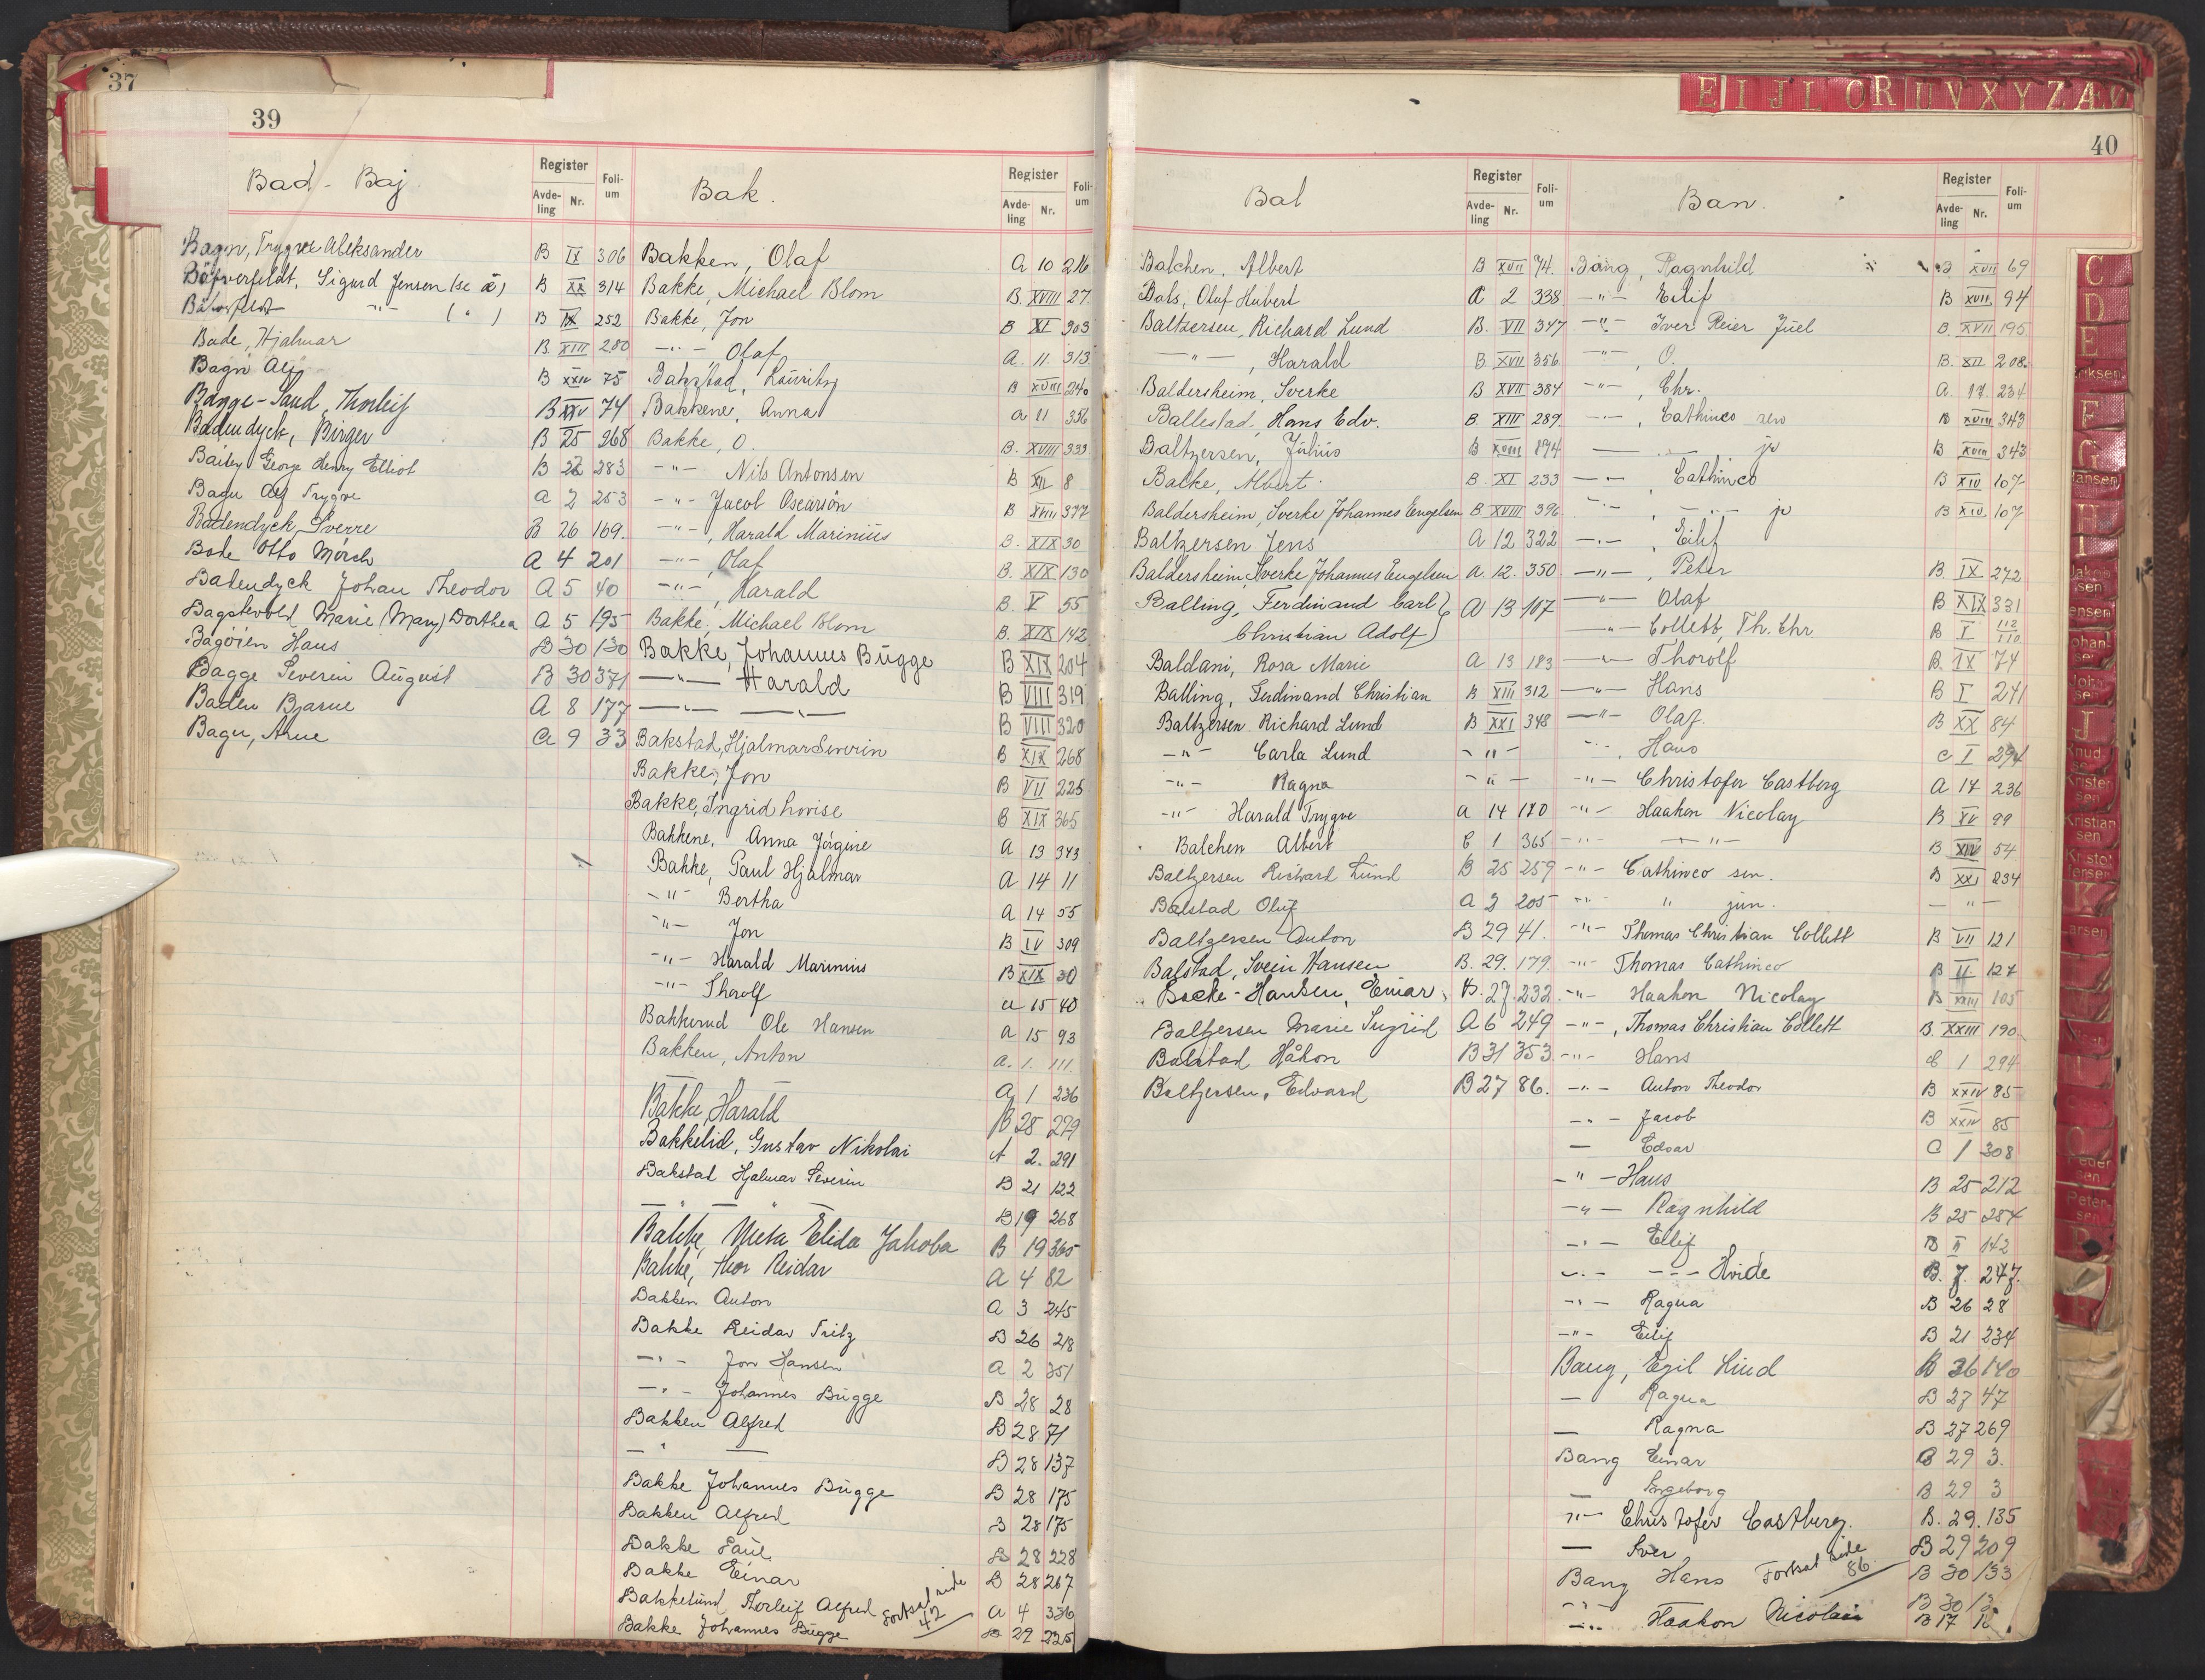 37
39
Bad - Baj.
Register
Avde-ling Nr.
Foli-um
Bagn, Trygve Aleksander B IX 306
Sigurd Jensen (se æ) B XX 314
B IX 252
Bade, Hjalmar B. XIII 280
Bagn Alf B XXIV 75
Bagge-Saud, Thorleif B XXIV 74
Badendyck, Birger B 25 268
Bailey George Henry Elliot B 26 283
Bagn Alf Trygve A 2 253
Badendyck, Sverre B 26 169.
Bade Otto Mørch A 4 201
Badendyck Johan Theodor A 5 40
Bagstevold Marie (Mary) Dorthea A 5 195
Bagöien Hans B 30 130
Bagge Severin August B 30 371
Baden Bjarne A 8 177
Bagn, Arne A 9 33
Bak.
Register
Avde-ling Nr.
Foli-um
Bakken, Olaf A 10 216
Bakke, Michael Blom B. XVIII 27
Bakke, Jon B XI 303
—"— Olaf A. 11. 313
Bakstad, Lauritz B XVIII 240
Bakkene, Anna A 11 356
Bakke, O. B. XVIII 333
—"— Nils Antonsen B XII 8
—"— Jacob Oscarson B XVIII 377
—"—, Harald Marinius B. XIX 30
—"—, Olaf B. XIX 130
—"—, Harald B. V 55
Bakke, Michael Blom B. XIX 142
Bakke, Johannes Bugge B XIX 204
—"— Harald B VIII 319
—"— —"— B VIII 320
Bakstad, Hjalmar Severin B XIX 268
Bakke, Jon B VII 225
Bakke, Ingrid Lovise B XIX 365
Bakkene, Anna Jörgine A 13 343
Bakke, Paul Hjalmar A 14 11
—"— Bertha A 14 55
—"— Jon B IV 309
—"— Harald Marinius B XIX 30
—"— Thorolf A 15 40
Bakkerud Ole Hansen A 15 93
Bakken, Anton A. 1. 111.
A 1 236
Bakke, Harald B 28 279
Bakkelid, Gustav Nikolai A 2. 291
Bakstad Hjalmar Severin B 21 122
— " — " B 19 268
Bakke, Meta Elida Jakoba B 19 365
Bakke, Thor Reidar A 4 82
Bakken Anton A 3 245
Bakke Reidar Fritz B 26 218
—"— Jon Hansen A 2 351
—"— Johannes Bugge B 28 28
Bakken Alfred B 28 71
— " — B 28 137
Bakke Johannes Bugge B 28 175
Bakken Alfred B 28 175
Bakke Paul B 28 228
Bakke Einar B 28 267
Bakkelund, Thorleif Alfred A 4 336
Bakke Johannes Bugge B 29 225
Fortsat side 42
E I J L O R U V X Y Z Æ
40
Bal
Register
Avde-ling Nr.
Foli-um
Balchen, Albert B XVII 74.
Bals, Oluf Hubert A 2 338
Baltzersen, Richard Lund B. VII 347
—"—, Harald B. XVII 356
Baldersheim, Sverke B XVII 384
Ballestad, Hans Edv. B. XIII 289
Baltzersen, Julius B XVIII 394
Balke, Albert. B. XI 233
Baldersheim, Sverke Johannes Engelsen B XVIII 396
Baltzersen Jens A 12 322
Baldersheim, Sverke Johannes Engelsen A. 12. 350
Balling, Ferdinand Carl A 13 107
Christian Adolf
Baldani, Rosa Marie A 13 183
Balling, Ferdinand Christian B XIII 312
Baltzersen Richard Lund B XXI 348
—"— Carla Lund —"—
—"— Ragna —"—
—"— Harald Trygve A 14 180
Balchen Albert C 1 365
Baltzersen Richard Lund B 25 259
Balstad Oluf A 3 205
Baltzersen Anton B 29 41.
Balstad, Svein Hansen B. 29. 179.
Balke-Hansen, Einar, B. 29. 232.
Baltzersen Marie Ingrid A 6 249
Balstad Håkon B 31 353
Baltzersen, Edvard B 27 86.
Ban.
Register
Avde-ling Nr.
Foli-um
Bang, Ragnhild B XVII 69
—"— Eilif B XVII 94
—"— Iver Reier Juel B. XVII 195
—"—, O. B. XII 208
—"—, Chr. A. 17. 234
—"—, Cathinco sen B XVIII 343
—"— jr B XVIII 343
—"—, Cathinco B XIV 107
—"—, —"— jr B XIV 107
—"—, Eilif
—"—, Peter B. IX 272
—"— Olaf B XIX 331
—"— Collett, Th. Chr. B I 112/110
—"— Thorolf B. IX 74
—"— Hans B I 241
—"— Olaf. B XX 84
—"— Hans C I 294
—"— Christofer Castberg A 17 236
—"— Haakon Nicolay B XV 99
—"— —"— B XIV 54
—"— Cathinco sen. B XXI 234
—"— " jun. —"—
—"— Thomas Christian Collett B VII 121
—"— Thomas Cathinco B II 127
—"— Haakon Nicolay B XXIII 105
—"—, Thomas Christian Collett B. XXIII 190
—"— Hans C 1 294
—"— Anton Theodor B XXIV 85
—"— Jacob B XXIV 85
— Edvar C 1 308
—"— Hans B 25 212
—"— Ragnhild B 25 284
—"— Ellif B II 142
—"— —"— Hvide B. 7. 247.
—"— Ragna B 26 28
—"— Eilif B 21 234
Bang, Egil Lind B 36 140
— Ragna B 27 47
— Ragna B 27 269
Bang Einar B 29 3.
— Ingeborg B 29 3
—"— Christofer Castberg. B. 29. 135
— Iver B 29 209
Bang Hans B 30 133
Fortsat side 86
B 30 13
—"— Haakon Nicolai B 17
C
D
E
Eriksen
F
G
Hansen
H
I
Jakobsen
Jensen
Johansen
Johnsen
J
Knudsen
Kristensen
Kristiansen
Kristoffersen
K
Larsen
Pedersen
Petersen